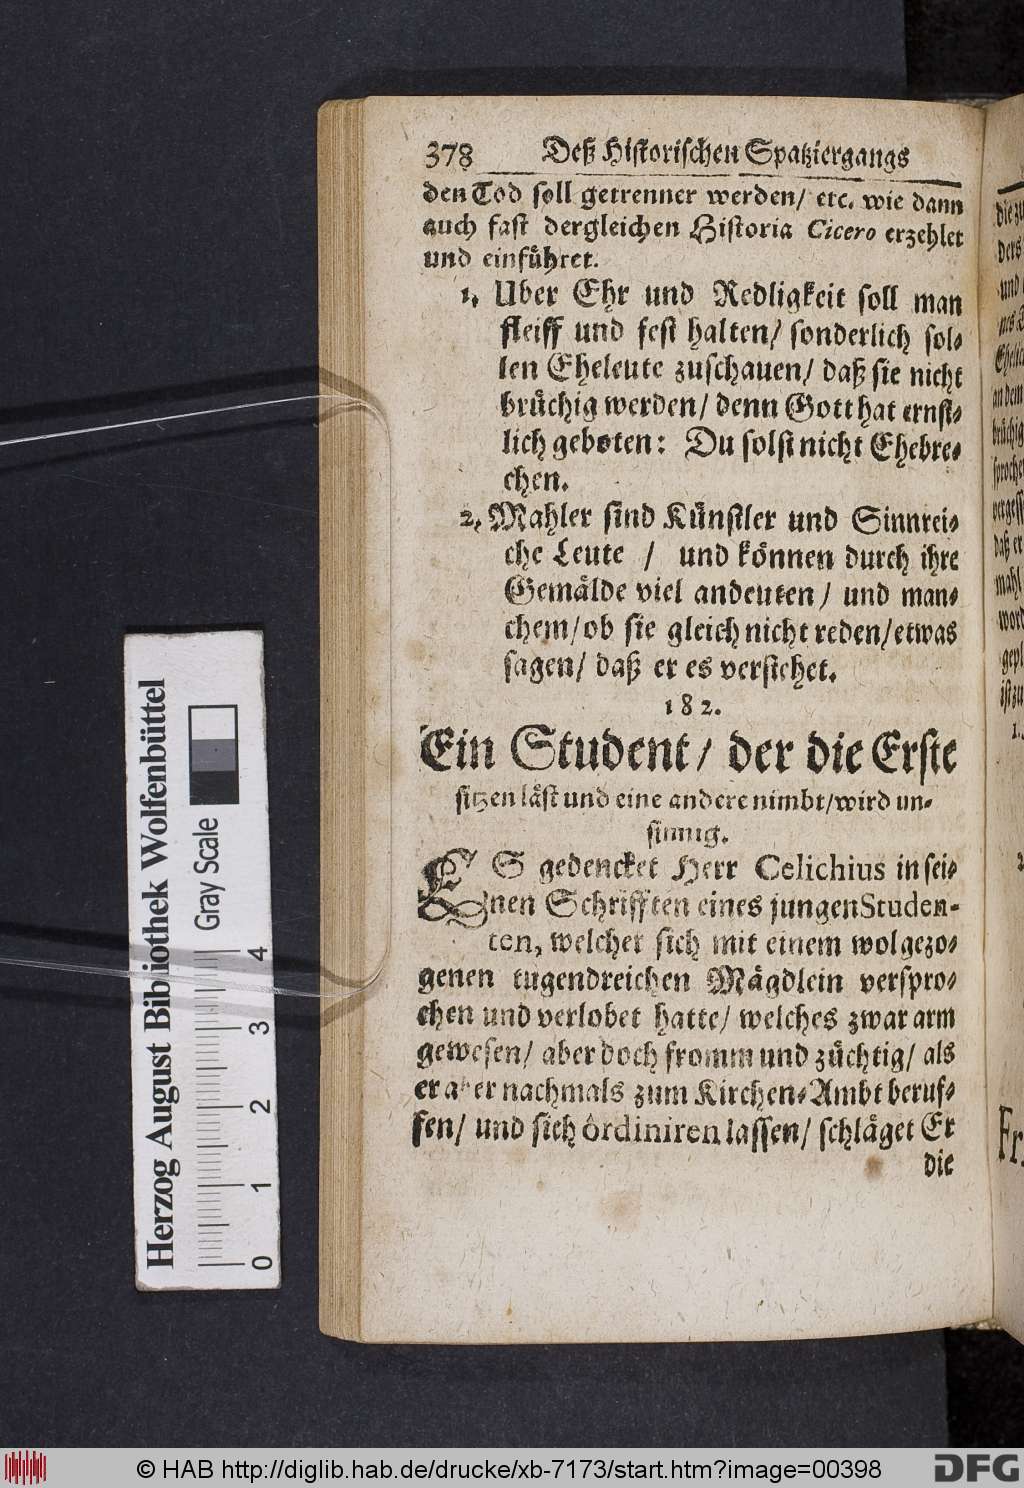 378 Deß Historischen Spatziergangs
den Tod soll getrennet werden/ etc. wie dann
auch fast dergleichen Historia Cicero erzehlet
und einführet.
1. Uber Ehr und Redligkeit soll man
steiff und fest halten/ sonderlich sol-
len Eheleute zuschauen/ daß sie nicht
brüchig werden/ denn Gott hat ernst-
lich geboten: Du solst nicht Ehebre-
chen.
2. Mahler sind Künstler und Sinnrei-
che Leute / und können durch ihre
Gemälde viel andeuten/ und man-
chem/ ob sie gleich nicht reden/ etwas
sagen/ daß er es verstehet.
182.
Ein Student/ der die Erste
sitzen läst und eine andere nimbt/ wird un-
sinnig.
ES gedencket Herr Celichius in sei-
nen Schrifften eines jungen Studen-
ten, welcher sich mit einem wolgezo-
genen tugendreichen Mägdlein verspro-
chen und verlobet hatte/ welches zwar arm
gewesen/ aber doch fromm und züchtig/ als
er aber nachmals zum Kirchen-Ambt beruf-
fen/ und sich ordiniren lassen/ schläget Er
die
Herzog August Bibliothek Wolfenbüttel
Gray Scale
0 1 2 3 4
© HAB http://diglib.hab.de/drucke/xb-7173/start.htm?image=00398
DFG